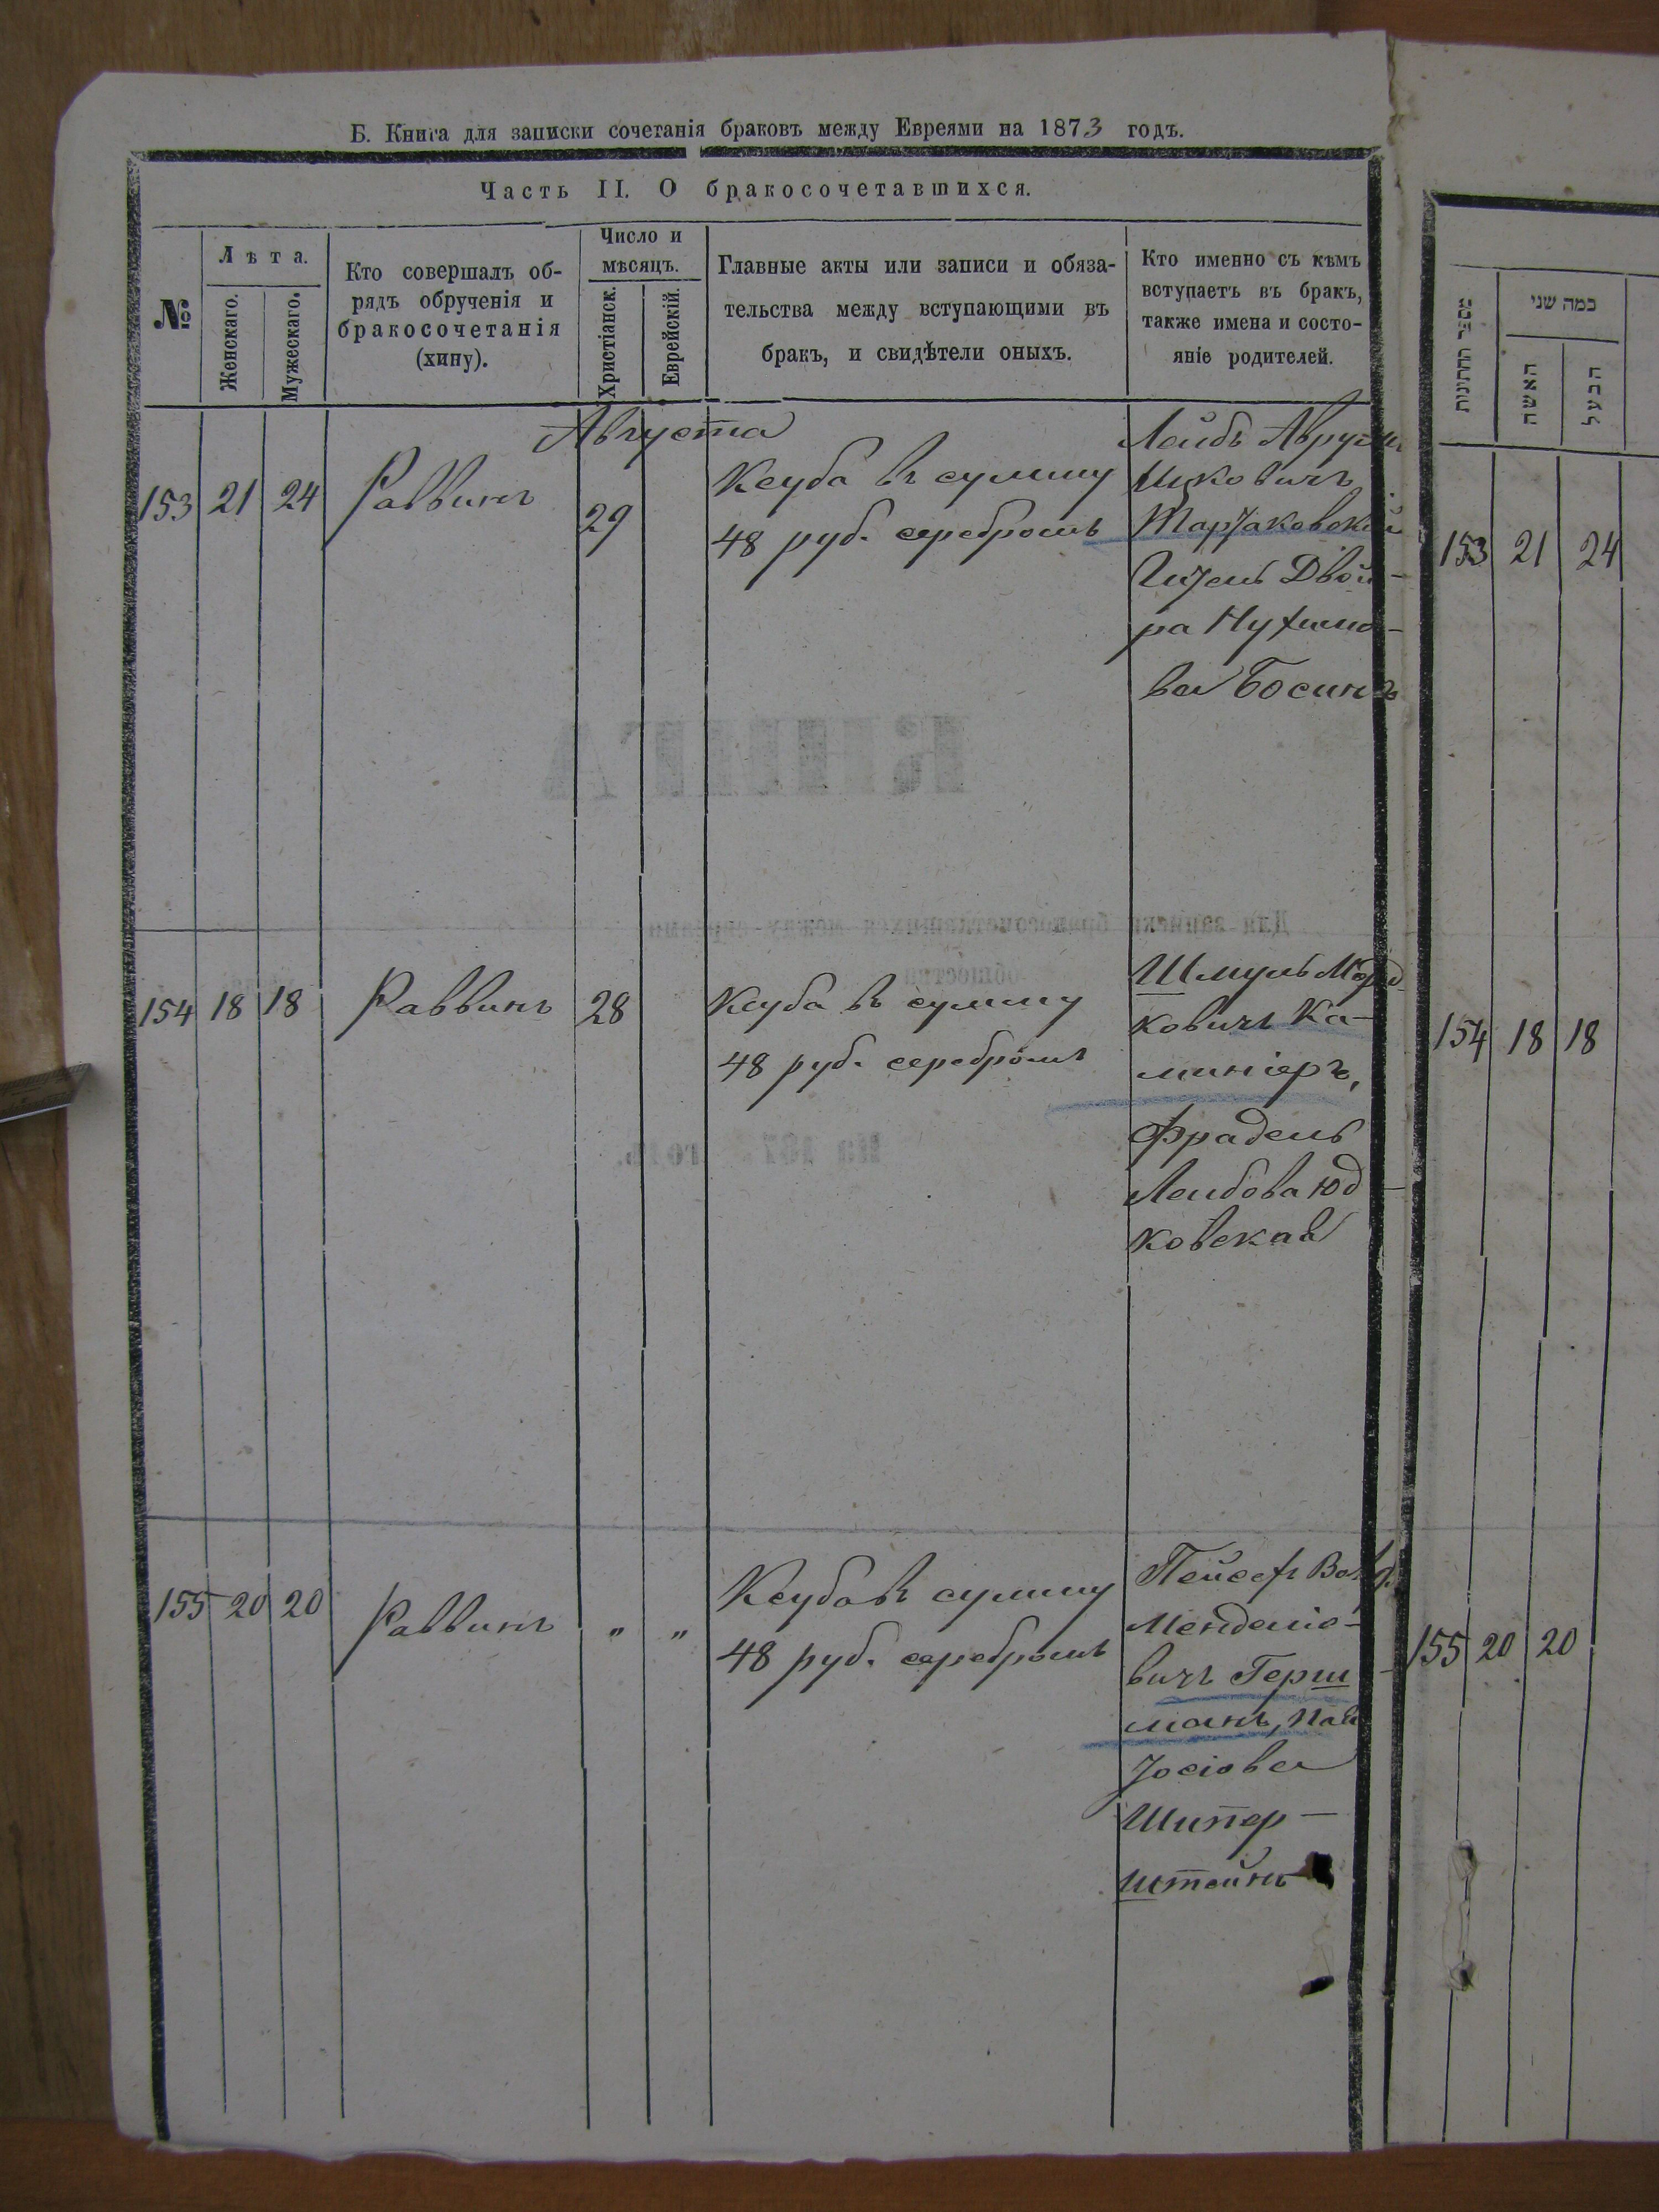 Б. Книга для записки сочетанія браковъ между Евреями на 1873 годъ.
Часть II. О бракосочетавшихся.
№
Лѣта.
Женскаго.
Мужескаго.
Кто совершалъ об-
рядъ обрученія и
бракосочетанія
(хипу).
Число и
мѣсяцъ.
Христіанск.
Еврейскій.
Главные акты или записи и обяза-
тельства между вступающими въ
бракъ, и свидѣтели оныхъ.
Кто именно съ кѣмъ
вступаетъ въ бракъ,
также имена и состо-
яніе родителей.
Августа
153 21 24 Раввинъ 29
Ксуба въ сумму
48 руб. серебромъ
Лейбъ Аврум
Ицковичъ
Двой-
ра Нухимо-
ва Босинъ
154 18 18 Раввинъ 28
Ксуба въ сумму
48 руб. серебромъ
Шмуль Морд
ковичъ Ка-
минеръ,
Фрадель
Лейбова Юд-
ковская
155 20 20 Раввинъ " "
Ксуба въ сумму
48 руб. серебромъ
Пейсех Вольф.
Менделіо-
вичъ Герш-
манъ,
Іосіова
Шипер-
штейнъ
КНИГА
Для записки бракосочетавшихся между евреями
На 187 годъ.
מספר החתונות
כמה שני
האשה
הבעל
153 21 24
154 18 18
155 20 20